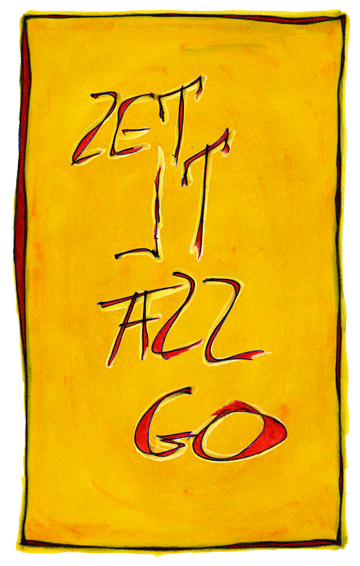 LET
IT
ALL
GO